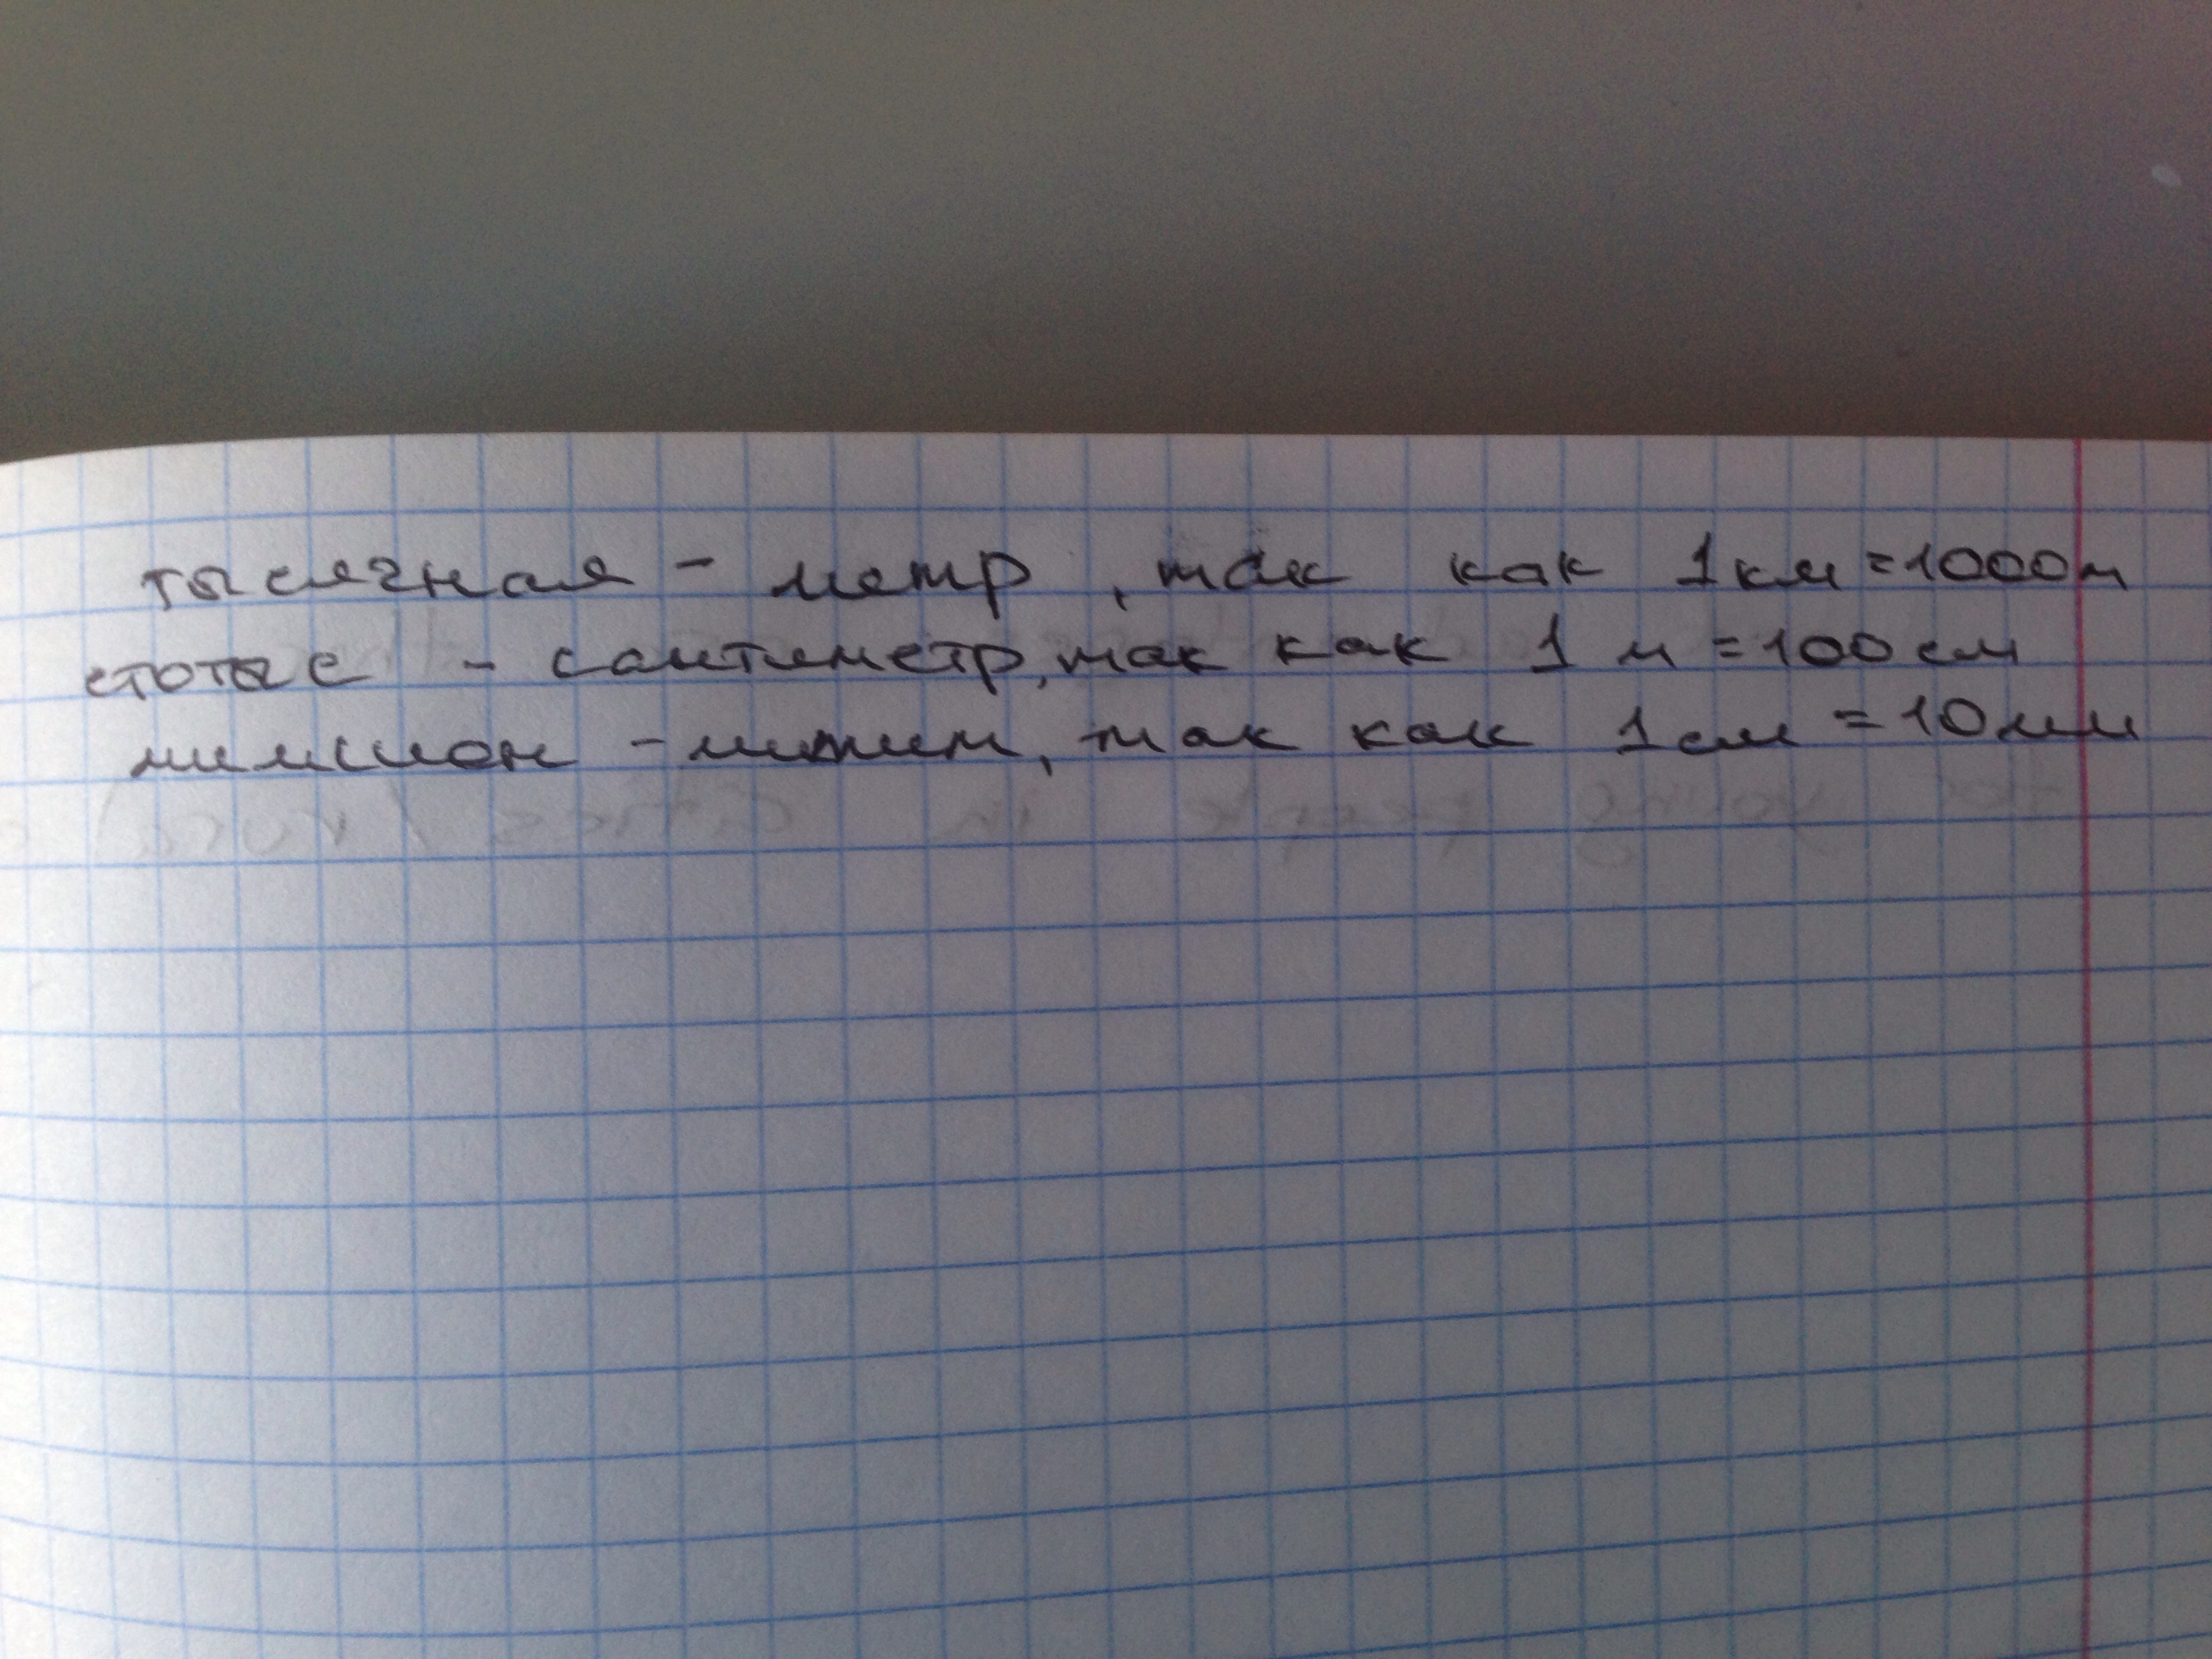 тысячная - метр, так как 1 км = 1000 м
стотые - сантиметр, так как 1 м = 100 см
миллион - милим, так как 1 см = 10 мм